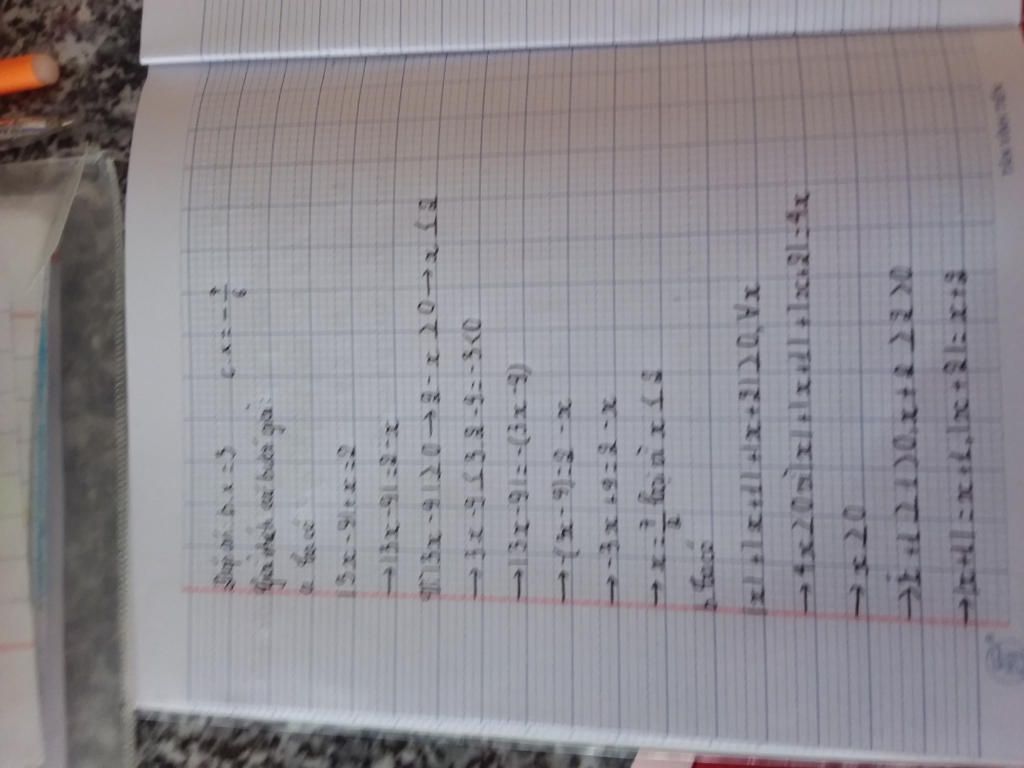 Đáp án: b. x = 3 c. x = -7/6
Giải thích các bước giải:
a. Ta có
|3x - 9| + x = 2
→ |3x - 9| = 2 - x
Vì |3x - 9| ≥ 0 → 2 - x ≥ 0 → x ≤ 2
→ 3x - 9 ≤ 3.2 - 9 = -3 < 0
→ |3x - 9| = -(3x - 9)
→ -(3x - 9) = 2 - x
→ -3x + 9 = 2 - x
→ x = 7/2 loại vì x ≤ 2
b. Ta có
|x| + |x + 1| + |x + 2| ≥ 0, ∀x
→ 4x ≥ 0 vì |x| + |x + 1| + |x + 2| = 4x
→ x ≥ 0
→ x + 1 ≥ 1 > 0, x + 2 ≥ 2 > 0
→ |x + 1| = x + 1, |x + 2| = x + 2